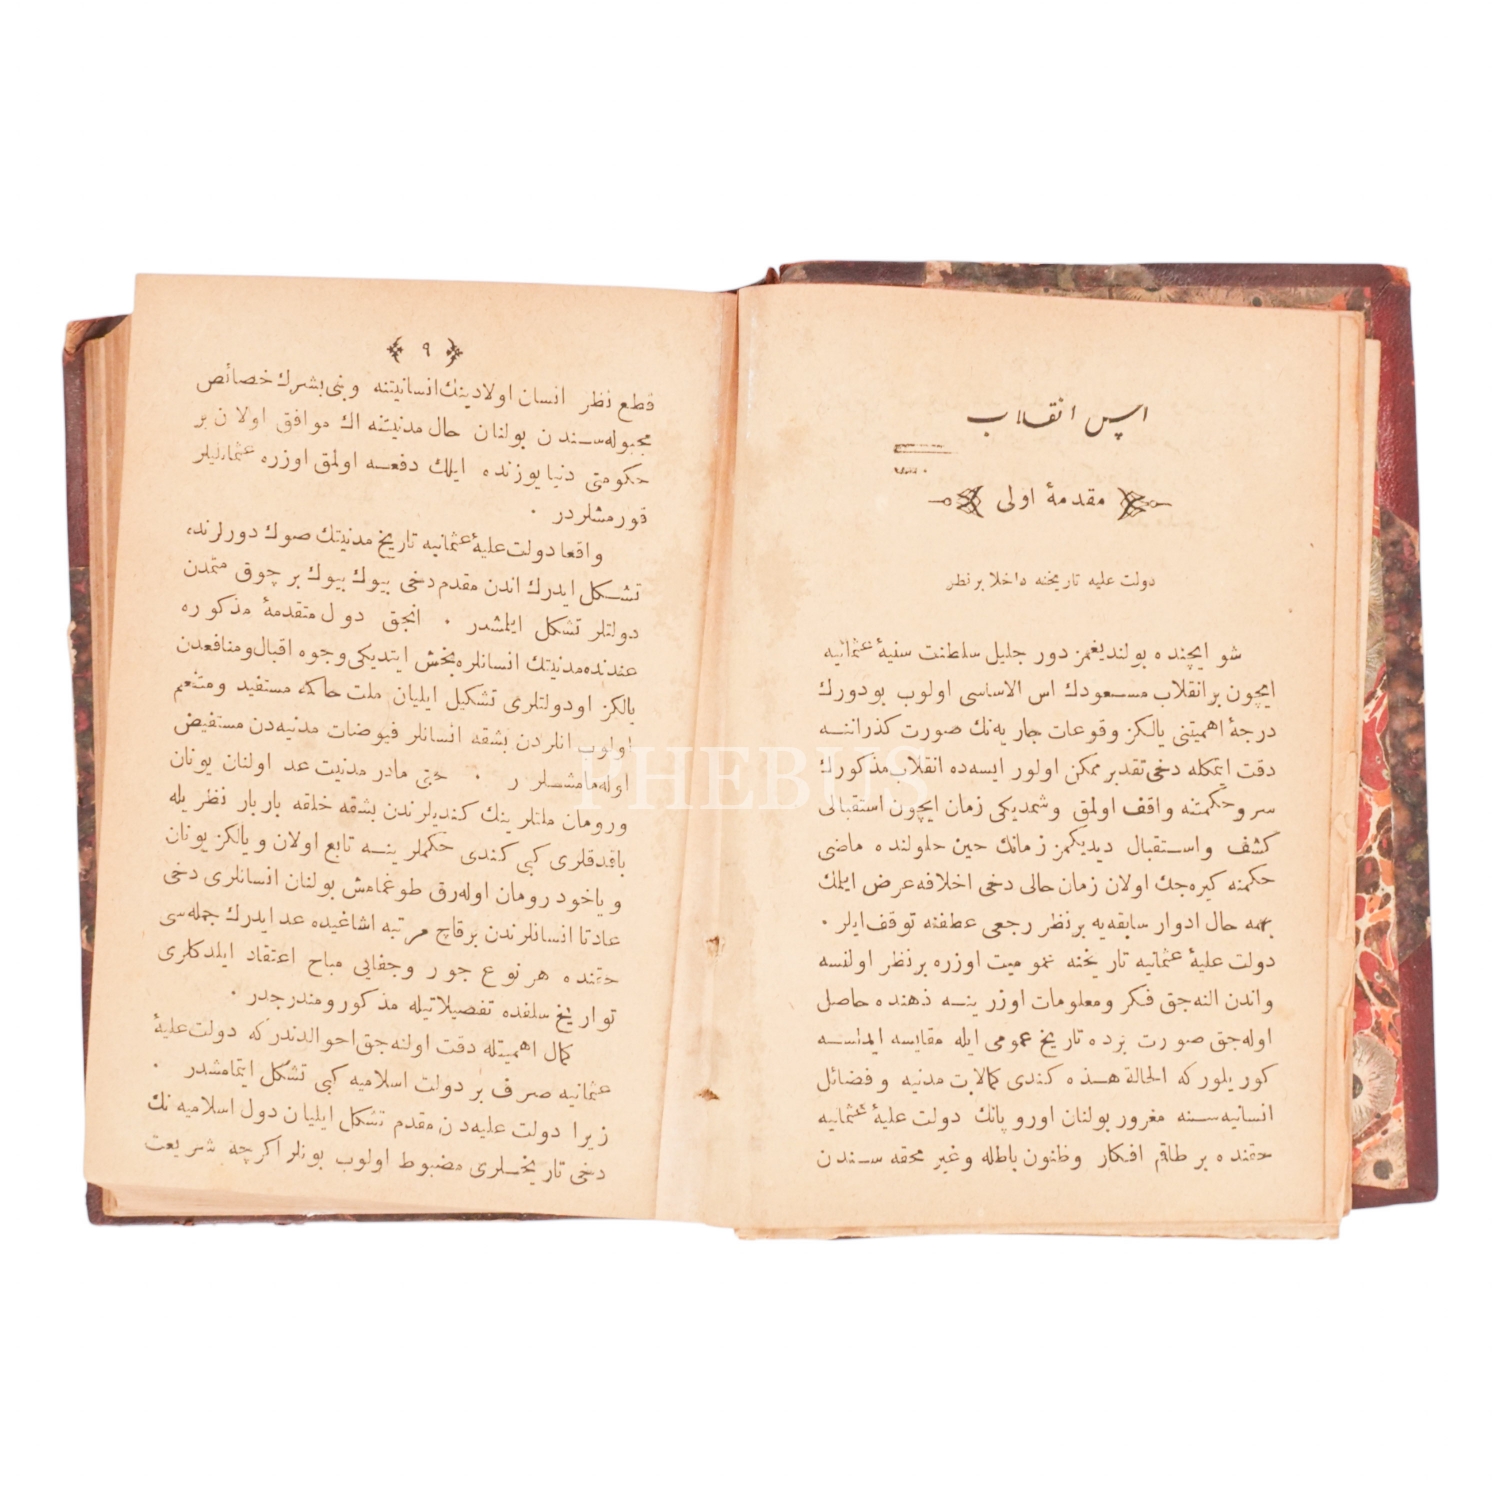 اس انقلاب
مقدمهٔ اولی
دولت علیه تاریخنه داخلا بر نظر
شو ایچنده بولندیغمز دور جلیل سلطنت سنیهٔ عثمانیه
ایچون بر انقلاب مسعودك اس الاساسی اولوب بو دورك
درجهٔ اهمیتنی یالکز وقوعات جاریه‌نك صورت کذراننه
دقت ایتمکله دخی تقدیر ممکن اولور ایسه‌ده انقلاب مذکورك
سر وحکمتنه واقف اولمق وشمدیکی زمان ایچون استقبالی
کشف واستقبال دیدیکمز زمانك حین حلولنده ماضی
حکمنه کیره‌جك اولان زمان حالی دخی اخلافه عرض ایلمك
بهمه حال ادوار سابقه‌یه بر نظر رجعی عطفنه توقف ایلر .
دولت علیهٔ عثمانیه تاریخنه عمومیت اوزره بر نظر اولنسه
واندن النه‌جق فکر ومعلومات اوزرینه ذهنده حاصل
اوله‌جق صورت بزده تاریخ عمومی ایله مقایسه ایدلسه
کوریلور که الحالة هذه کندی کمالات مدنیه وفضائل
انسانیه‌سنه مغرور بولنان اوروپانك دولت علیهٔ عثمانیه
حقنده بر طاقم افکار وظنون باطله وغیر محقه‌سندن
۹
قطع نظر انسان اولادینك انسانیتنه وبنی بشرك خصائص
مجبوله‌سندن بولنان حال مدنیتنه اك موافق اولان بر
حکومتی دنیا یوزنده ایلك دفعه اولمق اوزره عثمانلیلر
قورمشلردر .
واقعا دولت علیهٔ عثمانیه تاریخ مدنیتك صوك دورلرنده
تشکل ایدرك اندن مقدم دخی بیوك بیوك بر چوق متمدن
دولتلر تشکل ایلمشدر . انجق دول متقدمهٔ مذکوره
عندنده مدنیتك انسانلره بخش ایتدیکی وجوه اقبال ومنافعدن
یالکز او دولتلری تشکیل ایلیان ملت حاکمه مستفید ومتنعم
اولوب انلردن بشقه انسانلر فیوضات مدنیه‌دن مستفیض
اوله‌مامشلردر . حتی مادر مدنیت عد اولنان یونان
ورومان ملتلرینك کندیلرندن بشقه خلقه باربار نظریله
باقدقلری کبی کندی حکملرینه تابع اولان ویالکز یونان
ویاخود رومان اوله‌رق طوغمامش بولنان انسانلری دخی
عادتا انسانلرندن بر قاچ مرتبه اشاغیده عد ایدرك جمله‌سی
حقنده هر نوع جور وجفایی مباح اعتقاد ایلدکلری
تواریخ سلفده تفصیلاتیله مذکور ومندرجدر .
کمال اهمیتله دقت اولنه‌جق احوالدندر که دولت علیهٔ
عثمانیه صرف بر دولت اسلامیه کبی تشکل ایتمامشدر .
زیرا دولت علیه‌دن مقدم تشکل ایلیان دول اسلامیه‌نك
دخی تاریخلری مضبوط اولوب بونلر اکرچه شریعت
PHEBUS